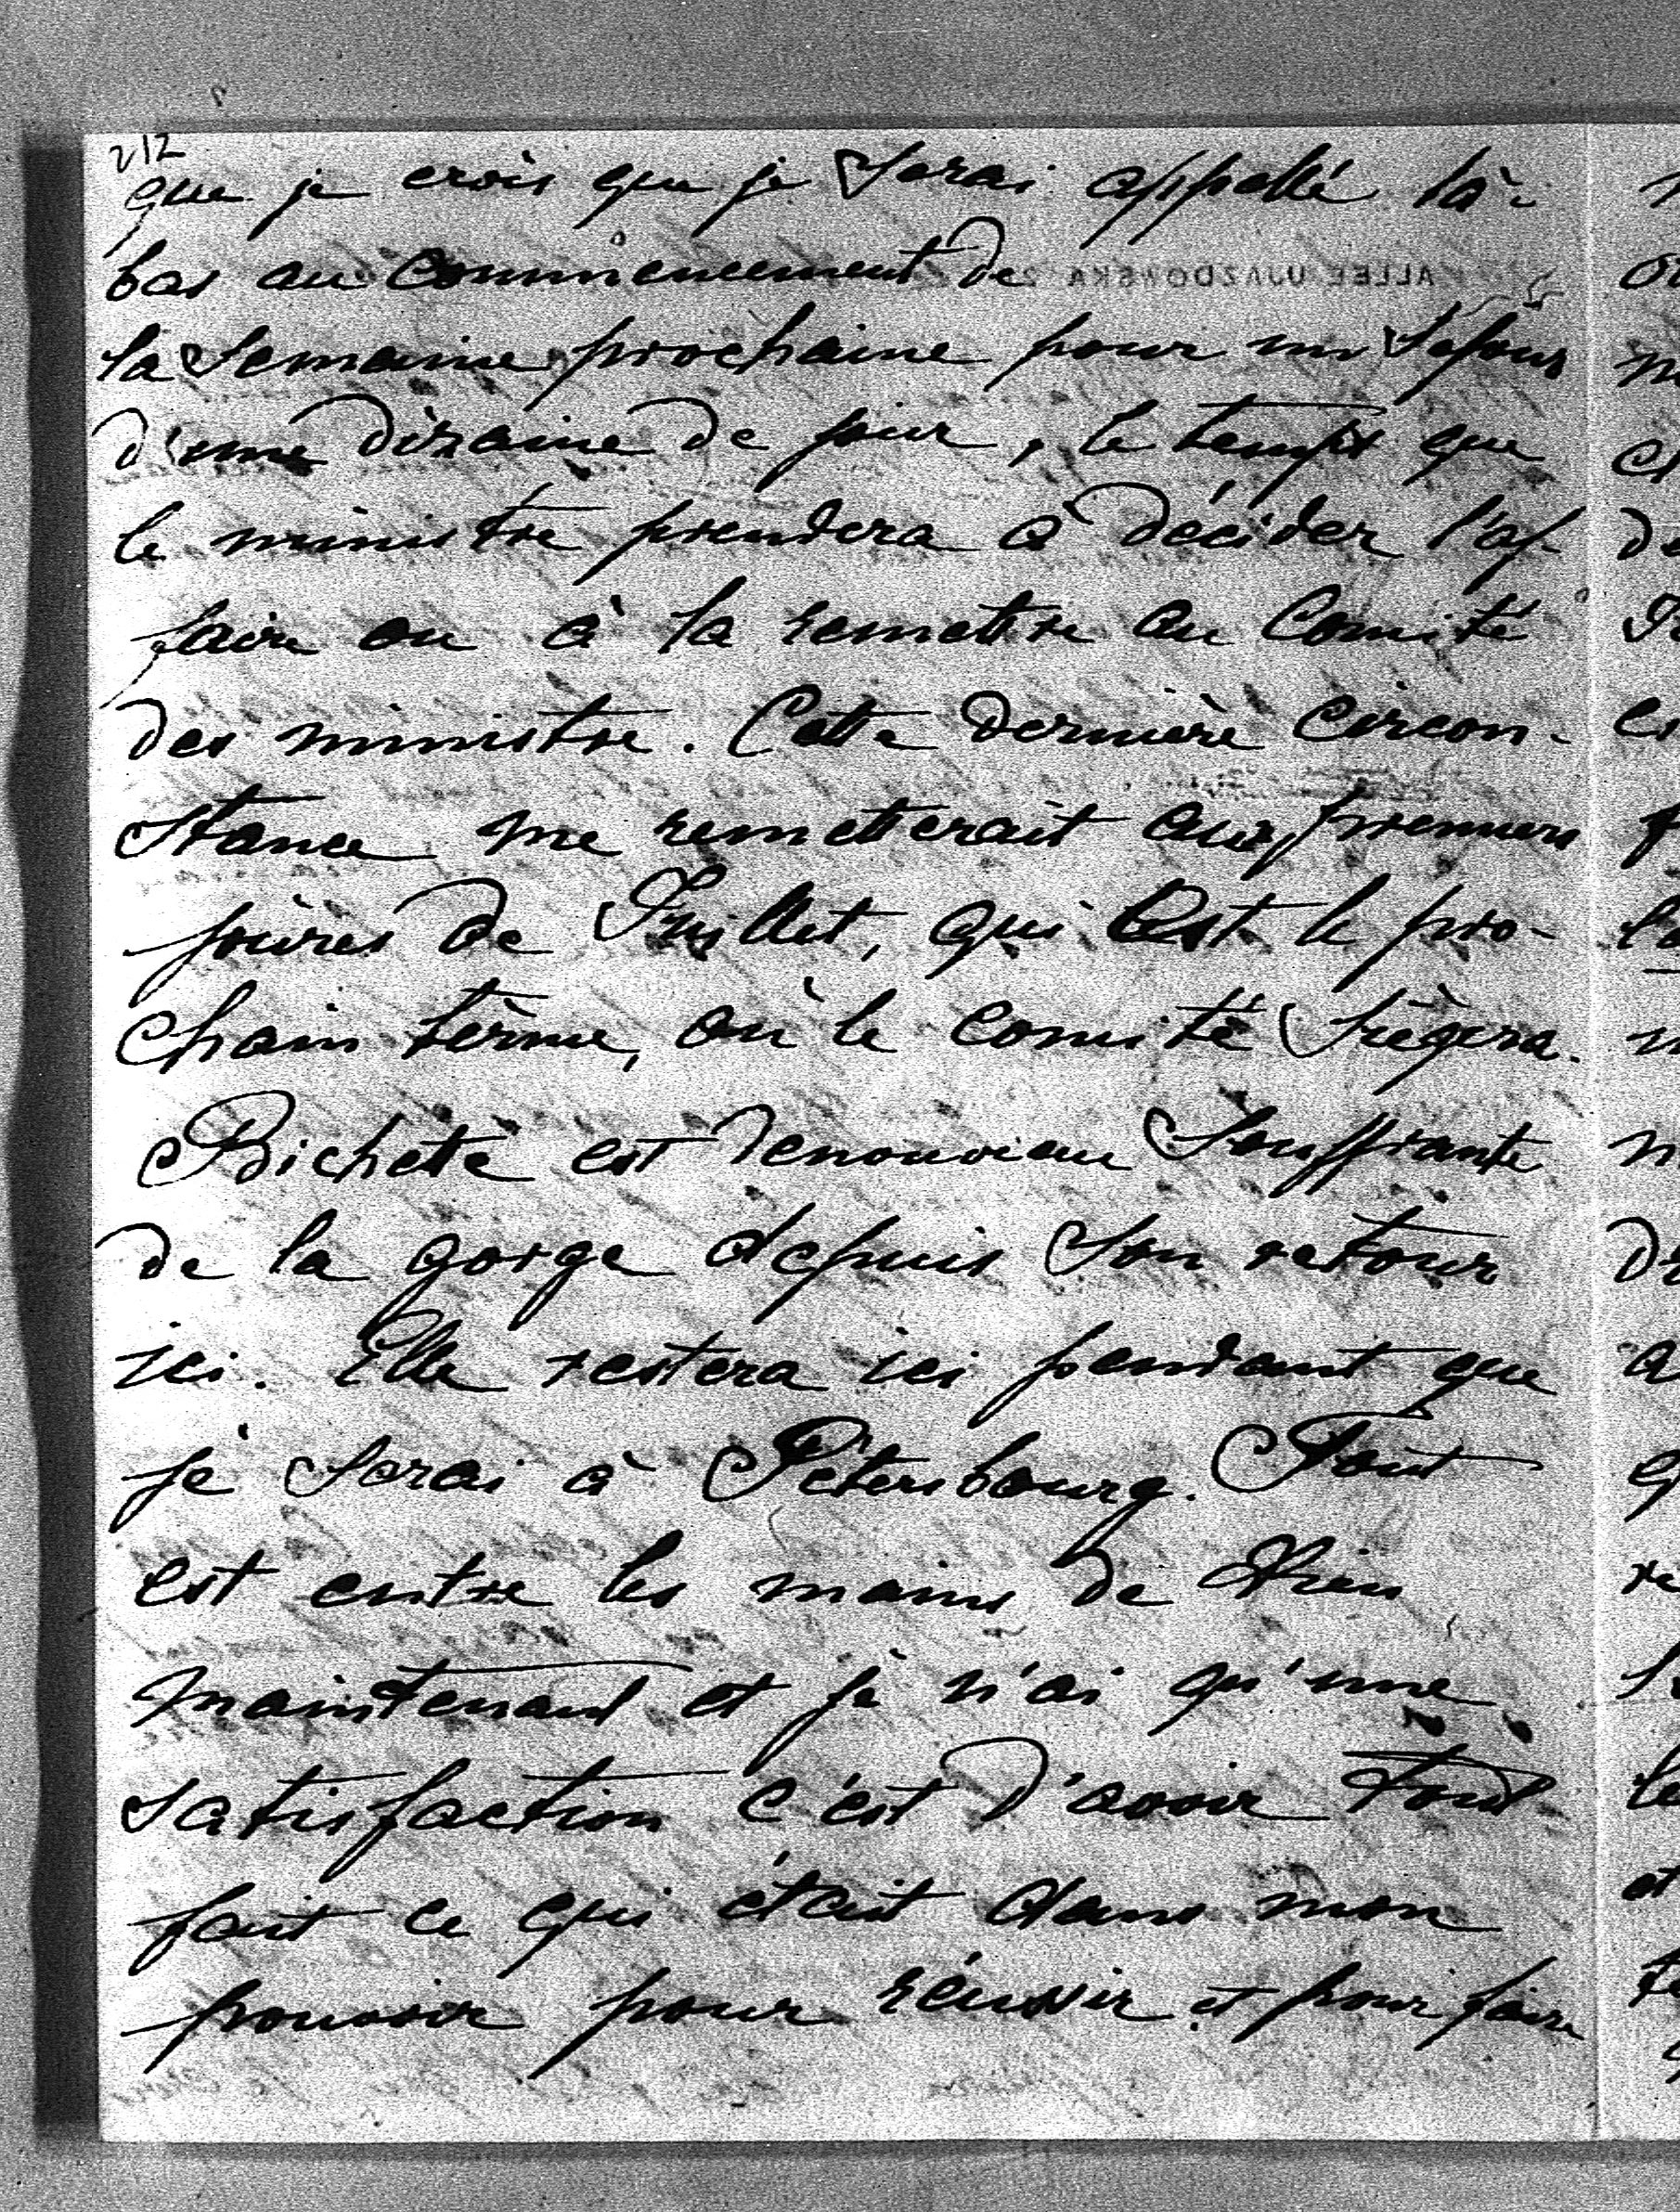 212
que je crois que je serai appellé là-
bas au commencement de
la Semaine prochaine pour un Séjour
d'une dizaine de jour, le temps que
le ministre prendera à décider l'af-
faire ou à la remettre au Comité
des ministre. Cette dernière circon-
stance me remetterait aux premiers
joures de Juillet, qui Est le pro-
chain tèrme, où le comité Siègera.
Bichette est denouveau Souffrante
de la gorge depuis Son retour
ici. Elle restera ici pendant que
je Serai à Pétersbourg. Tout
est entre les mains de Dieu
maintenant et je n'ai qu'une
satisfaction c'est d'avoir tout
fait ce qui était dans mon
pouvoir pour réussir et pour faire